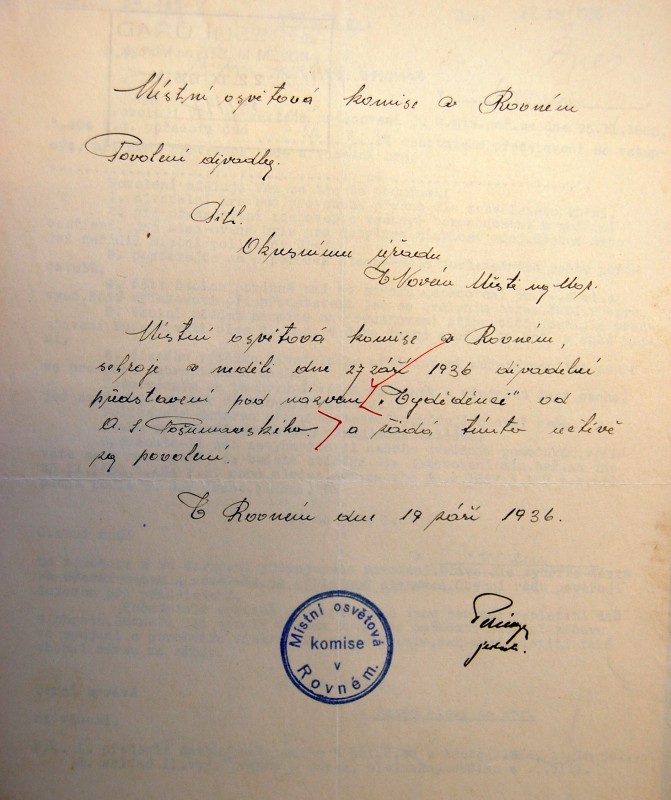 Místní osvětová komise v Rovném
Povolení divadla.
Titl.
Okresnímu úřadu
V Novém Městě na Mor.
Místní osvětová komise v Rovném,
sehraje v neděli dne 27 září 1936 divadelní
představení pod názvem „Vyděděnci" od
A. S. Pošumavského a žádá tímto uctivě
za povolení.
V Rovném dne 19 září 1936.
Místní osvětová
komise
v
Rovném.